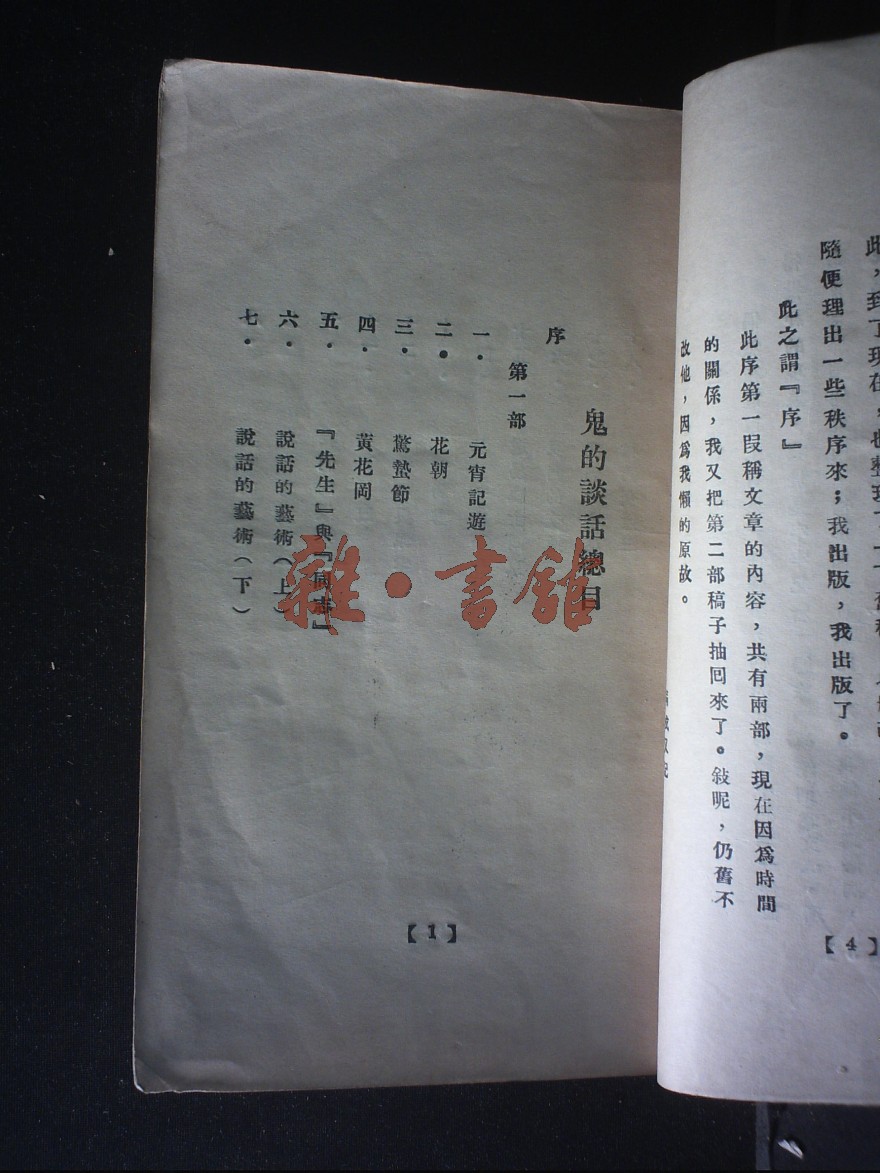 隨便理出一些秩序來；我出版，我出版了。
此之謂『序』
此序第一段稱文章的內容，共有兩部，現在因爲時間
的關係，我又把第二部稿子抽回來了。敍呢，仍舊不
改他，因爲我懶的原故。
【4】
鬼的談話總目
序
第一部
一．元宵記遊
二．花朝
三．驚蟄節
四．黃花岡
五．『先生』與『同志』
六．說話的藝術（上）
七．說話的藝術（下）
【1】
雜·書館